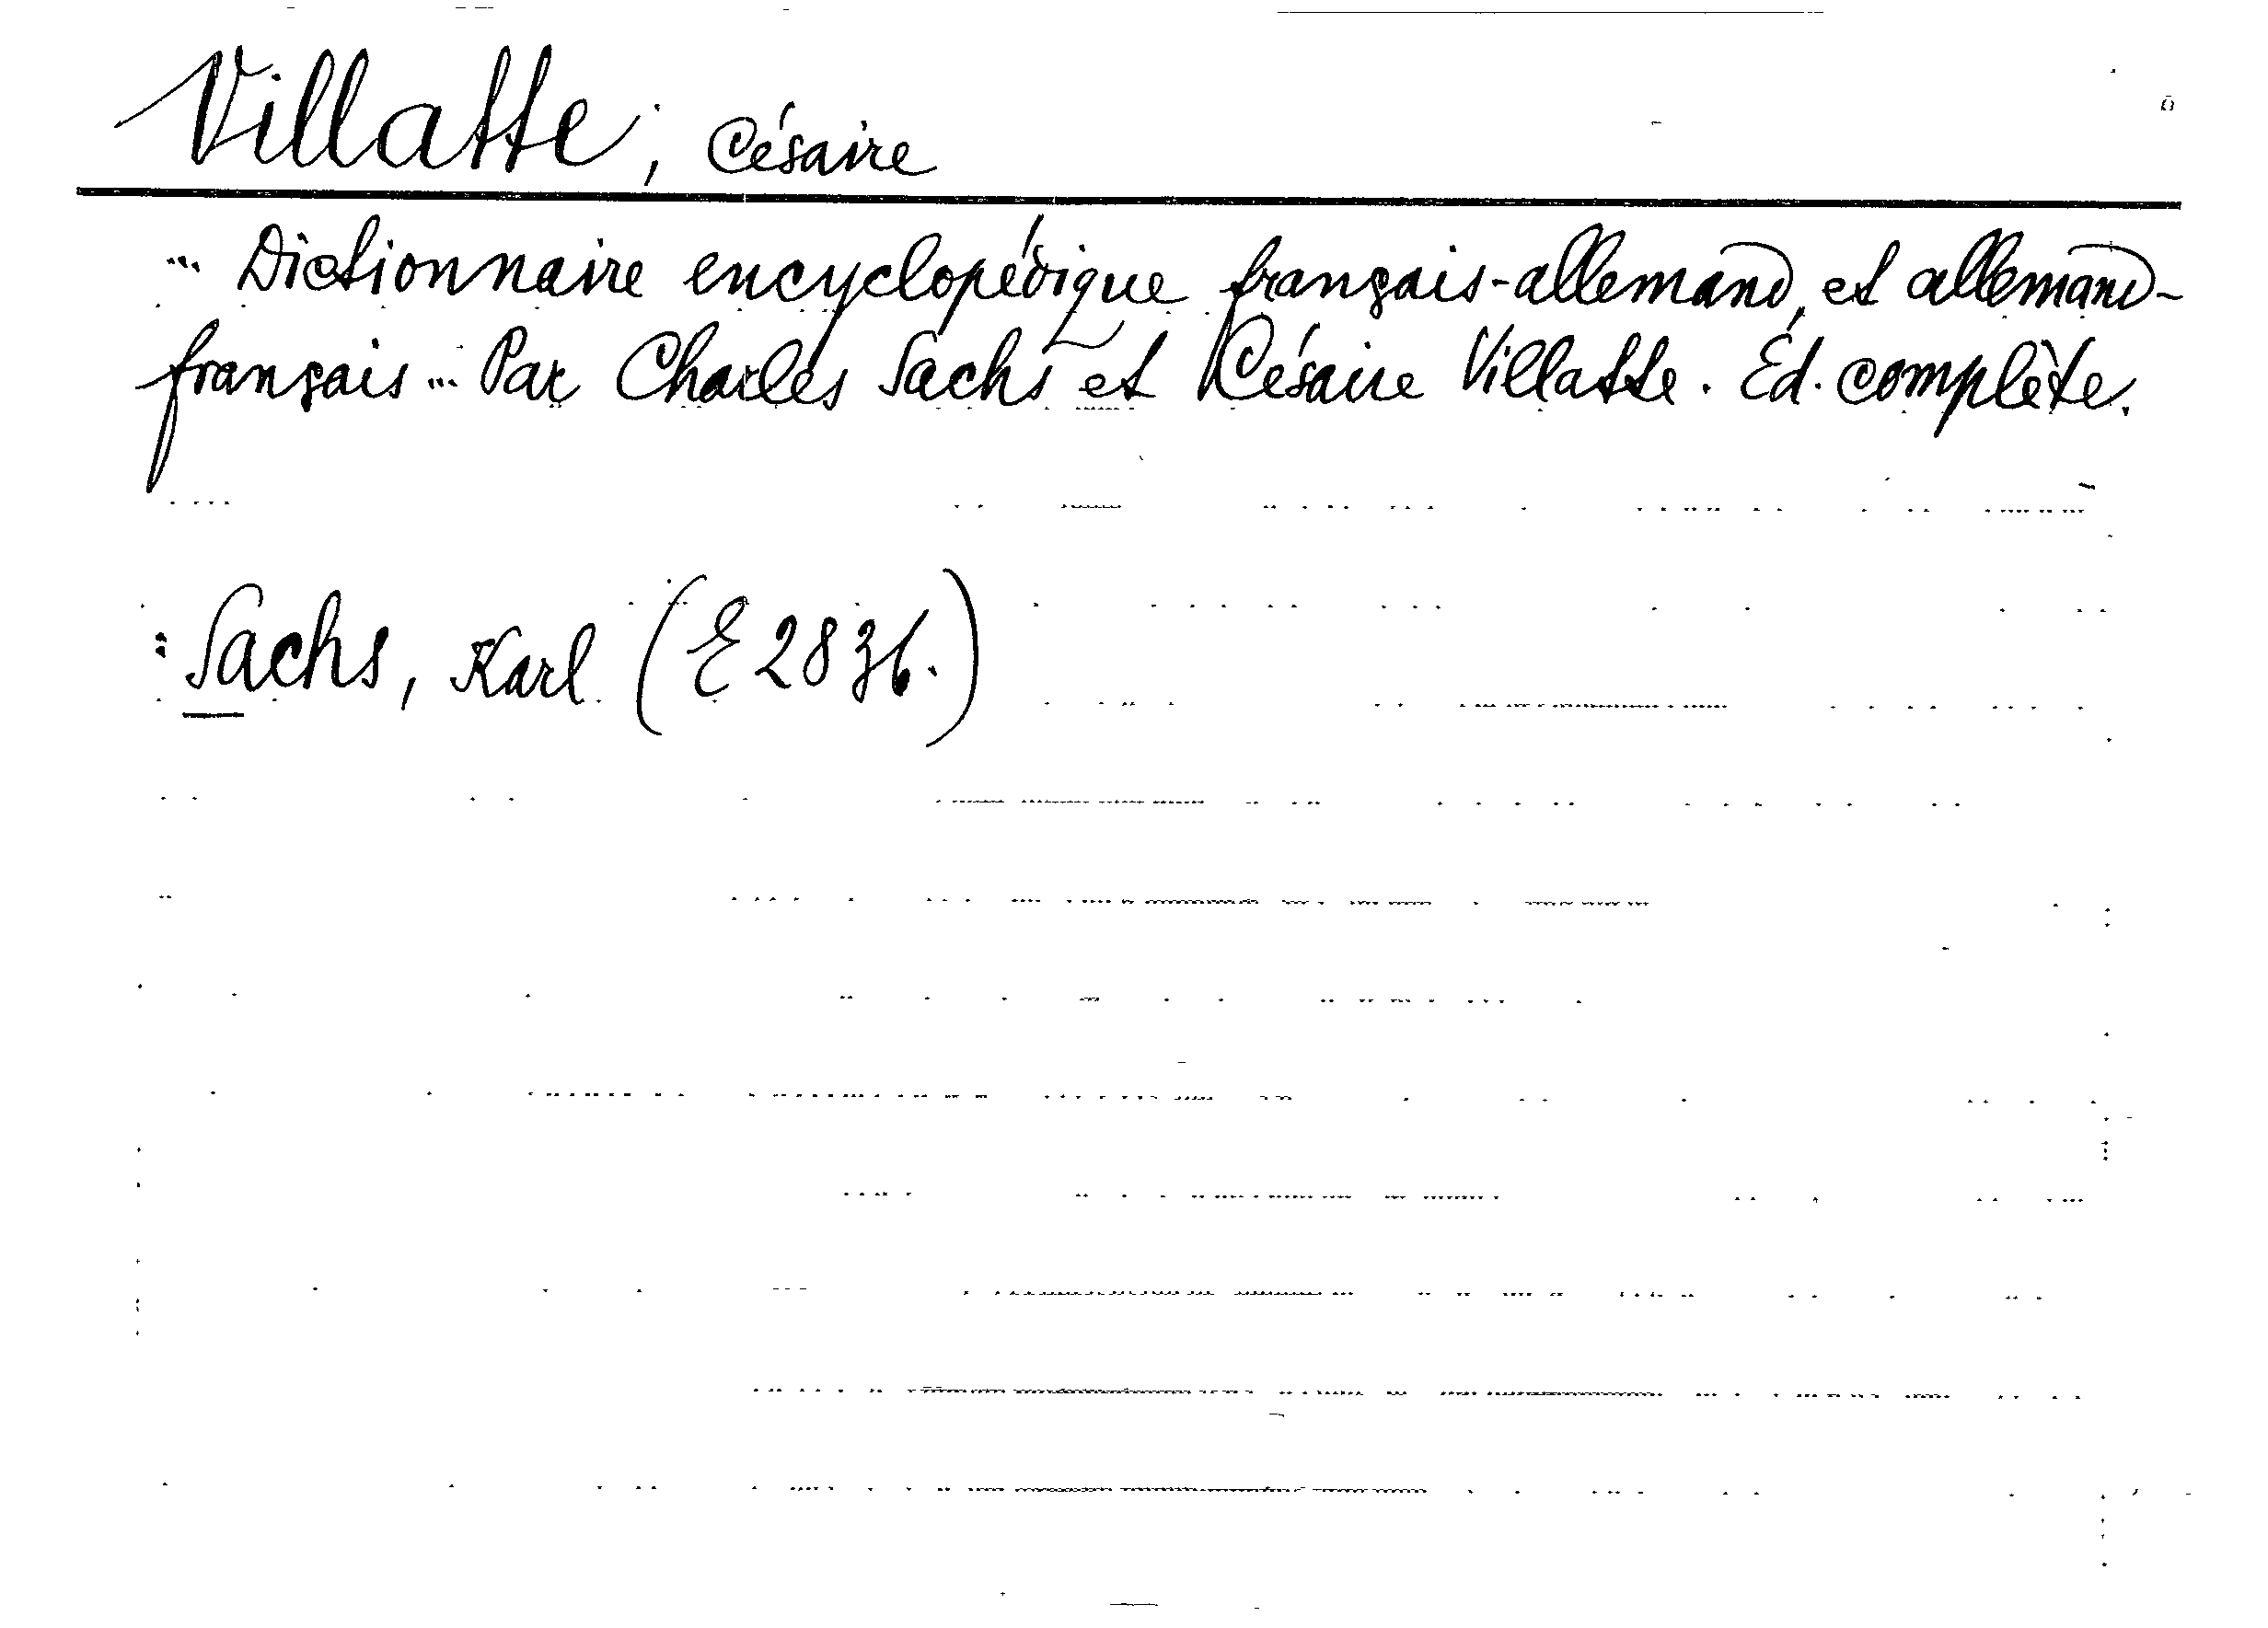 Villatte, Césaire
... Dictionnaire encyclopédique français-allemand, et allemand-
français ... Par Charles Sachs et Césaire Villatte. Éd. complète.
: Sachs, Karl (E 2836.)